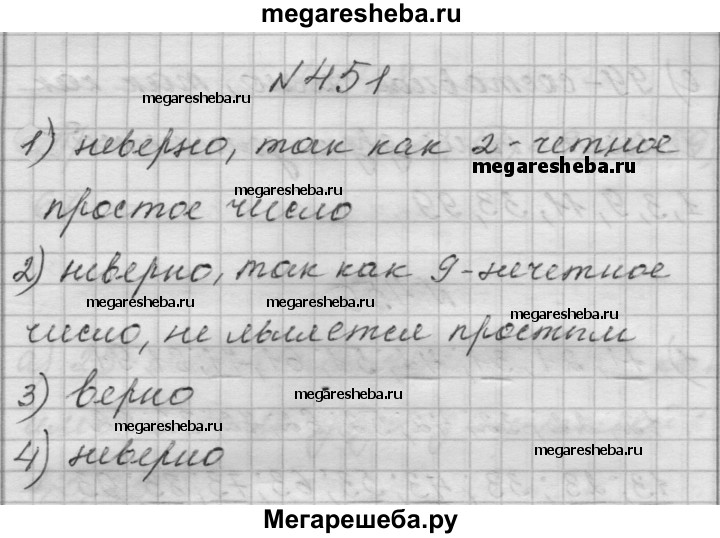 megaresheba.ru
№451
megaresheba.ru megaresheba.ru
1) неверно, так как 2-четное
megaresheba.ru
megaresheba.ru
простое число
2) неверно, так как 9-нечетное
megaresheba.ru megaresheba.ru megaresheba.ru
число, не является простым
3) верно megaresheba.ru
megaresheba.ru
4) неверно megaresheba.ru
Мегарешеба.ру